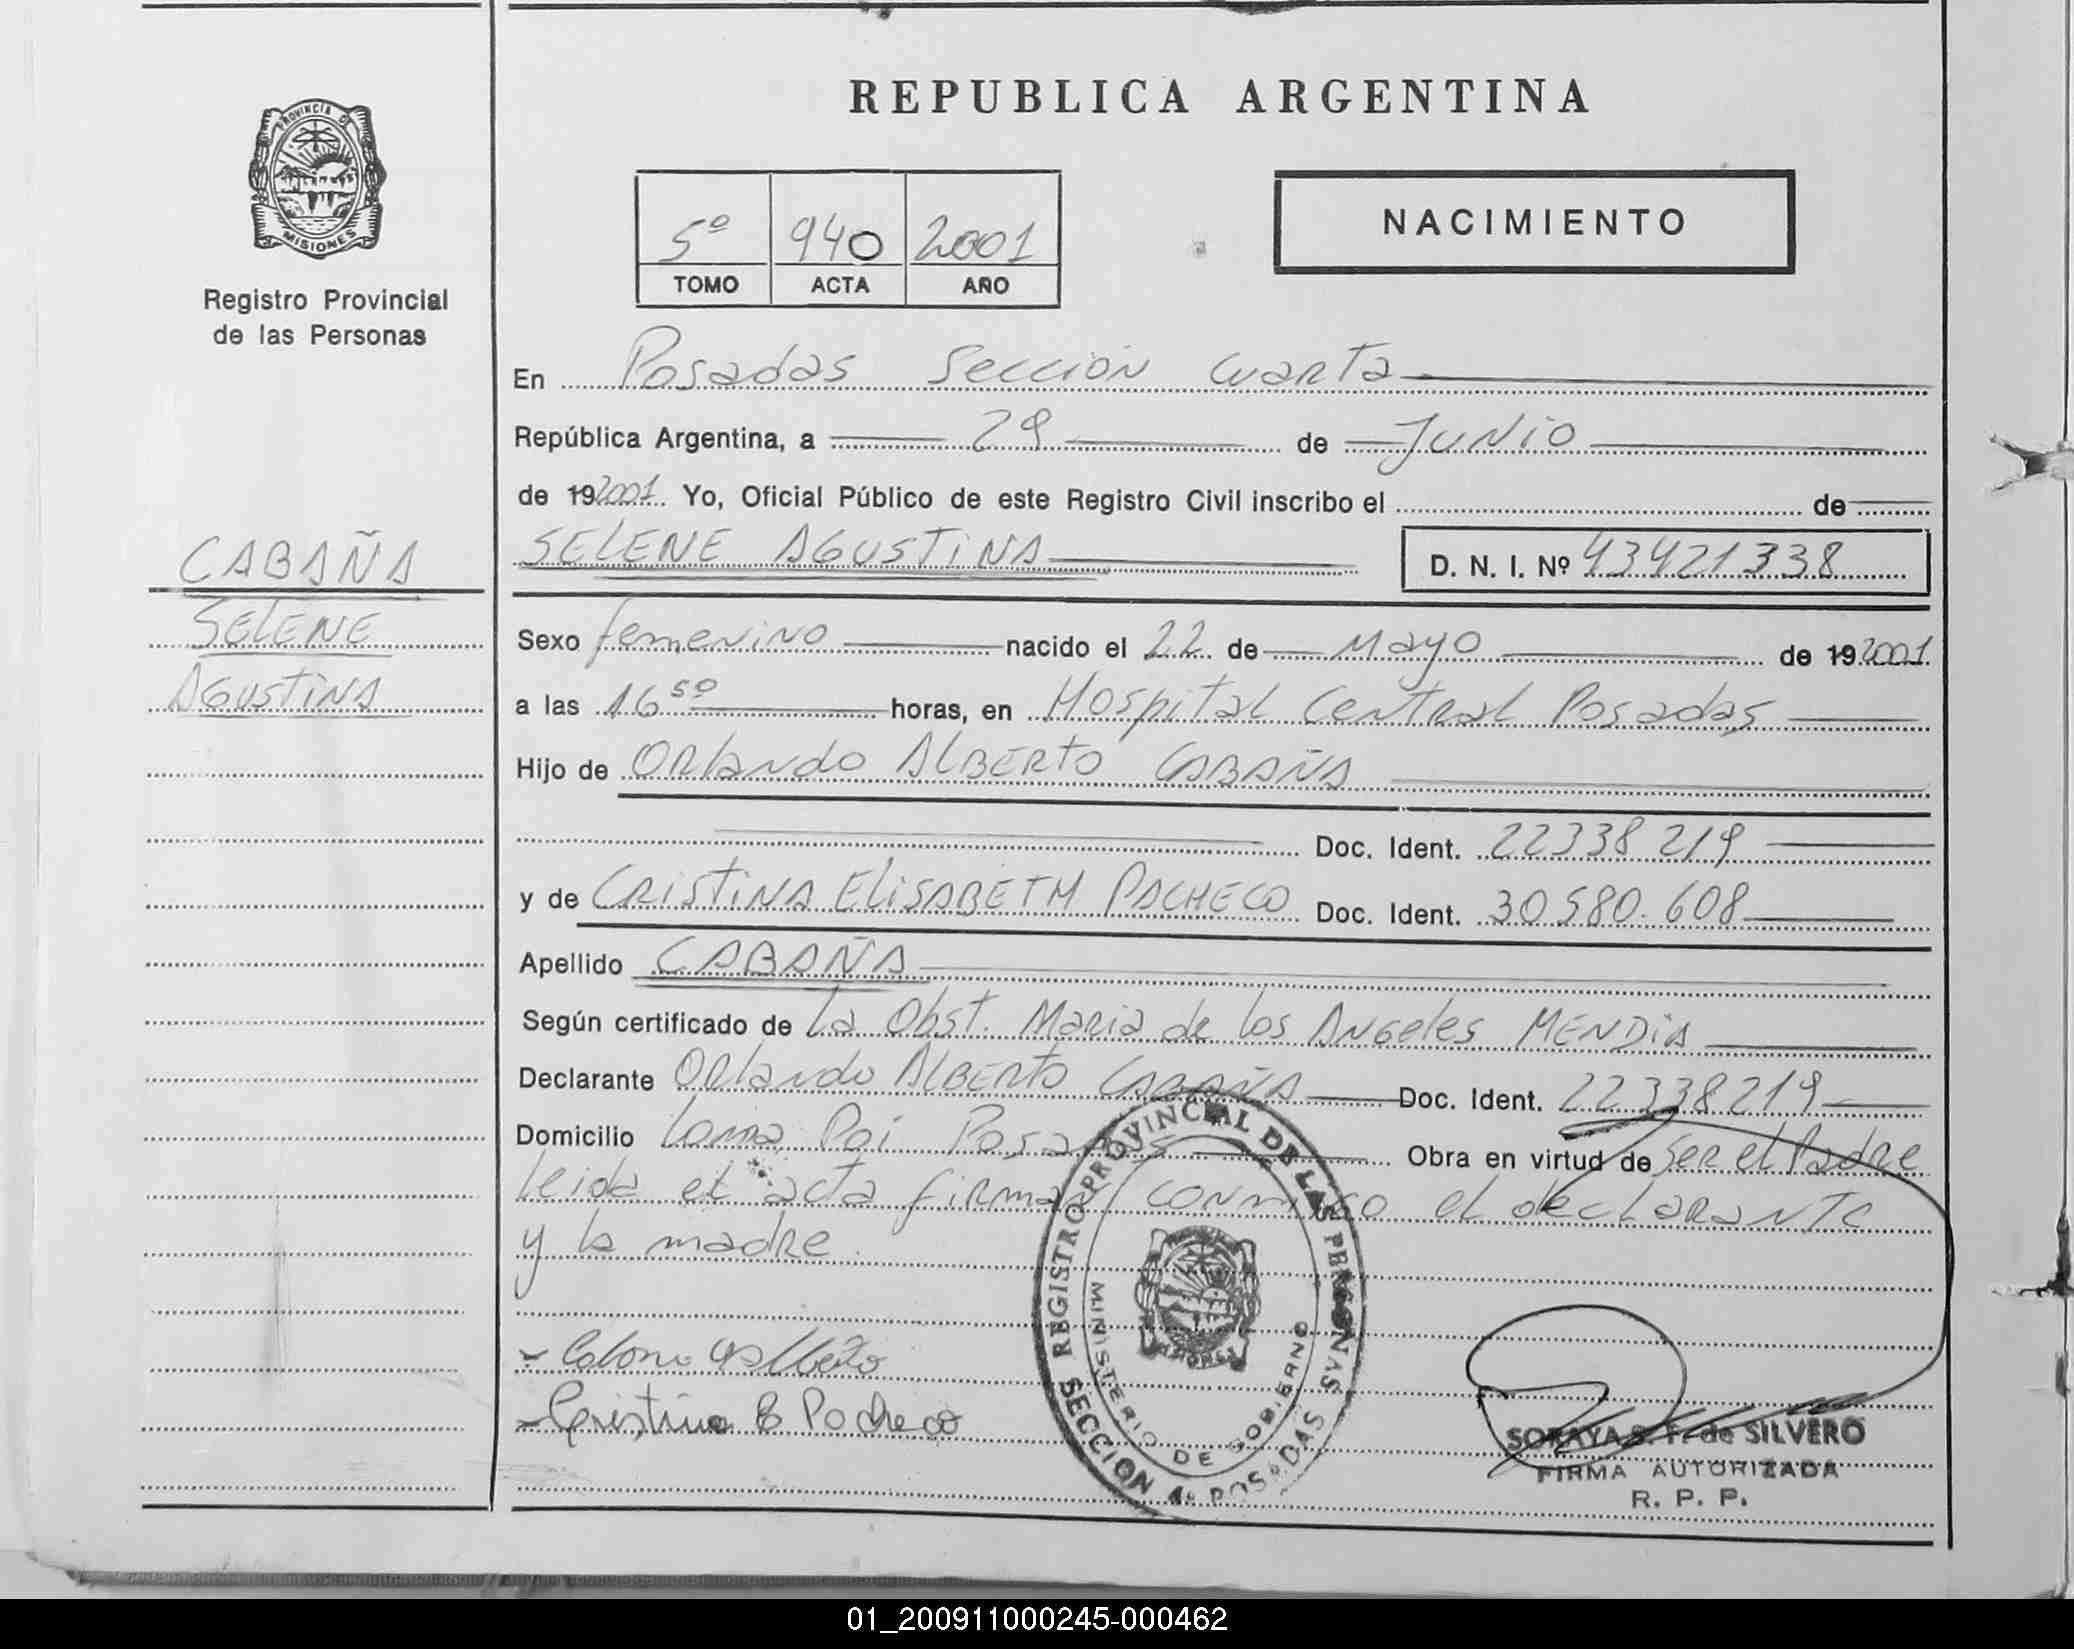 REPUBLICA ARGENTINA
PROVINCIA D MISIONES
Registro Provincial
de las Personas
5º 940 2001
TOMO ACTA AÑO
NACIMIENTO
En Posadas Sección Cuarta
República Argentina, a 29 de Junio
de 19 2001 Yo, Oficial Público de este Registro Civil inscribo el de
SELENE AGUSTINA D. N. I. Nº 43421338
CABAÑA
SELENE
AGUSTINA
Sexo femenino nacido el 22 de Mayo de 19 2001
a las 16 50 horas, en Hospital Central Posadas
Hijo de Orlando ALBERTO CABAÑA
Doc. Ident. 22338219
y de CRISTINA ELISABETH PACHECO Doc. Ident. 30580.608
Apellido CABAÑA
Según certificado de La Obst. Maria de los Angeles MENDIA
Declarante Orlando ALBERTO CABAÑA Doc. Ident. 22338219
Domicilio Loma Poi Posadas Obra en virtud de ser el Padre
leida el acta firman conmigo el declarante
y la madre.
Cristina E Pacheco
REGISTRO PROVINCIAL DE LAS PERSONAS
MINISTERIO DE GOBIERNO
SECCION 4º POSADAS
SORAYA S. F. de SILVERO
FIRMA AUTORIZADA
R. P. P.
01_200911000245-000462